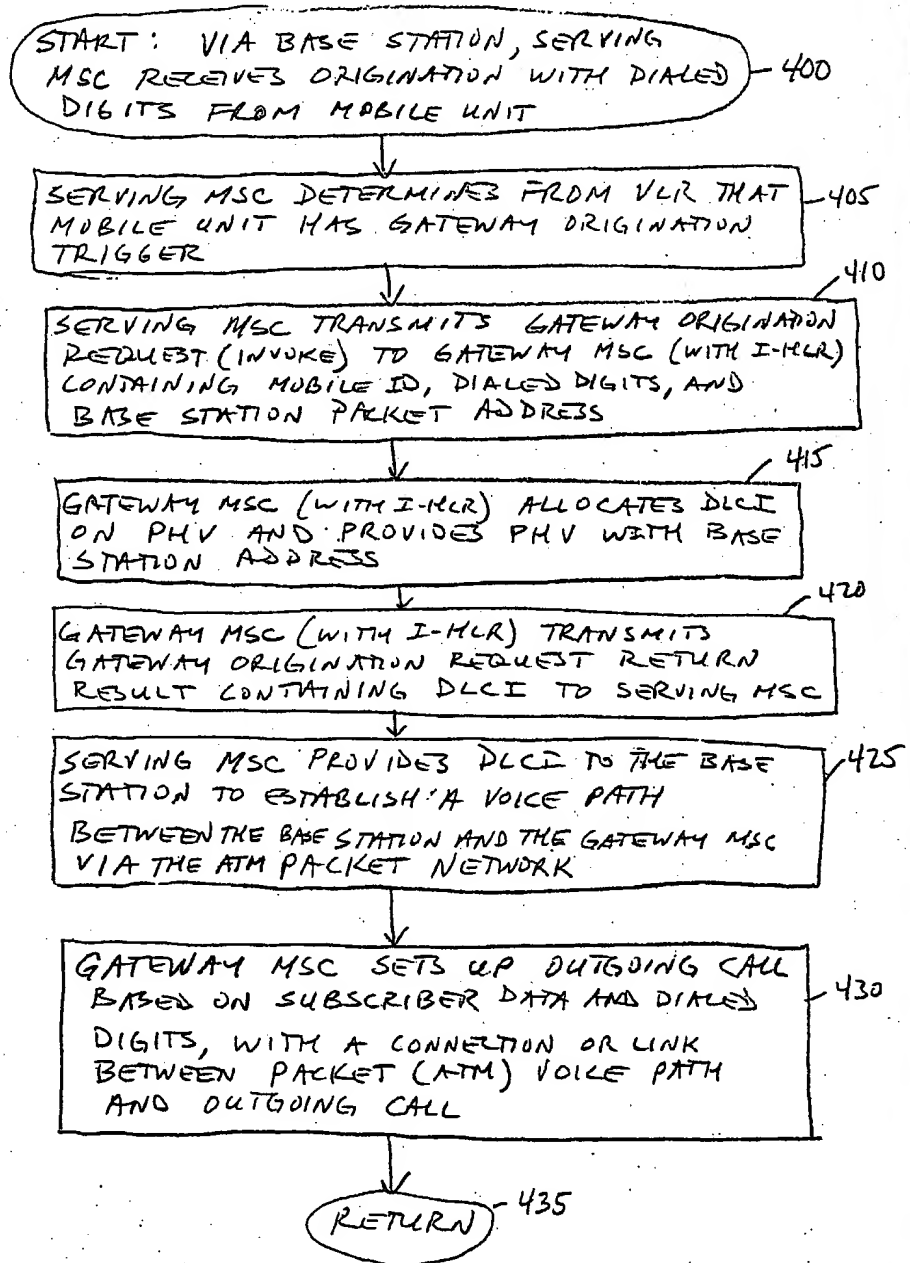 START: VIA BASE STATION, SERVING
MSC RECEIVES ORIGINATION WITH DIALED
DIGITS FROM MOBILE UNIT
400
SERVING MSC DETERMINES FROM VLR THAT
MOBILE UNIT HAS GATEWAY ORIGINATION
TRIGGER
405
410
SERVING MSC TRANSMITS GATEWAY ORIGINATION
REQUEST (INVOKE) TO GATEWAY MSC (WITH I-HLR)
CONTAINING MOBILE ID, DIALED DIGITS, AND
BASE STATION PACKET ADDRESS
415
GATEWAY MSC (WITH I-HLR) ALLOCATES DLCI
ON PHV AND PROVIDES PHV WITH BASE
STATION ADDRESS
420
GATEWAY MSC (WITH I-HLR) TRANSMITS
GATEWAY ORIGINATION REQUEST RETURN
RESULT CONTAINING DLCI TO SERVING MSC
SERVING MSC PROVIDES DLCI TO THE BASE
STATION TO ESTABLISH A VOICE PATH
BETWEEN THE BASE STATION AND THE GATEWAY MSC
VIA THE ATM PACKET NETWORK
425
GATEWAY MSC SETS UP OUTGOING CALL
BASED ON SUBSCRIBER DATA AND DIALED
DIGITS, WITH A CONNECTION OR LINK
BETWEEN PACKET (ATM) VOICE PATH
AND OUTGOING CALL
430
RETURN
435